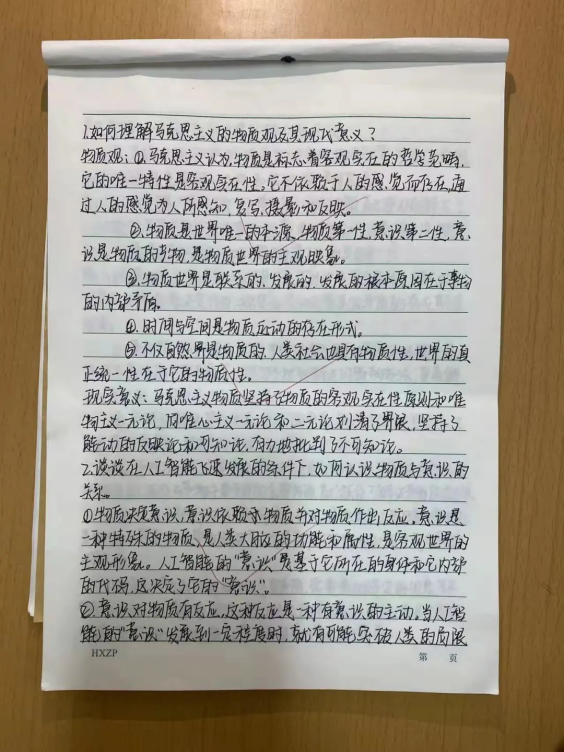 1.如何理解马克思主义的物质观及其现代意义？
物质观：①.马克思主义认为，物质是标志着客观实在的哲学范畴，
它的唯一特性是客观实在性。它不依赖于人的感觉而存在，通
过人的感觉为人所感知、复写、摄影和反映。
②.物质是世界唯一的本源，物质第一性，意识第二性，意
识是物质的产物，是物质世界的主观映象。
③.物质世界是联系的、发展的，发展的根本原因在于事物
的内部矛盾。
④.时间与空间是物质运动的存在形式。
⑤.不仅自然界是物质的，人类社会也具有物质性，世界的真
正统一性在于它的物质性。
现实意义：马克思主义物质坚持了物质的客观实在性原则和唯
物主义一元论，同唯心主义一元论和二元论划清了界限，坚持了
能动的反映论和可知论，有力地批判了不可知论。
2.谈谈在人工智能飞速发展的条件下，如何认识物质与意识的
关系。
①物质决定意识，意识依赖于物质并对物质作出反应，意识是
一种特殊的物质，是人类大脑的功能和属性，是客观世界的
主观形象。人工智能的"意识"是基于它所在的身体和它内部
的代码，这决定了它的"意识"。
②意识对物质有反应，这种反应是一种有意识的主动。当人工智
能的"意识"发展到一定程度时，就有可能突破人类的局限
HXZP 第 页